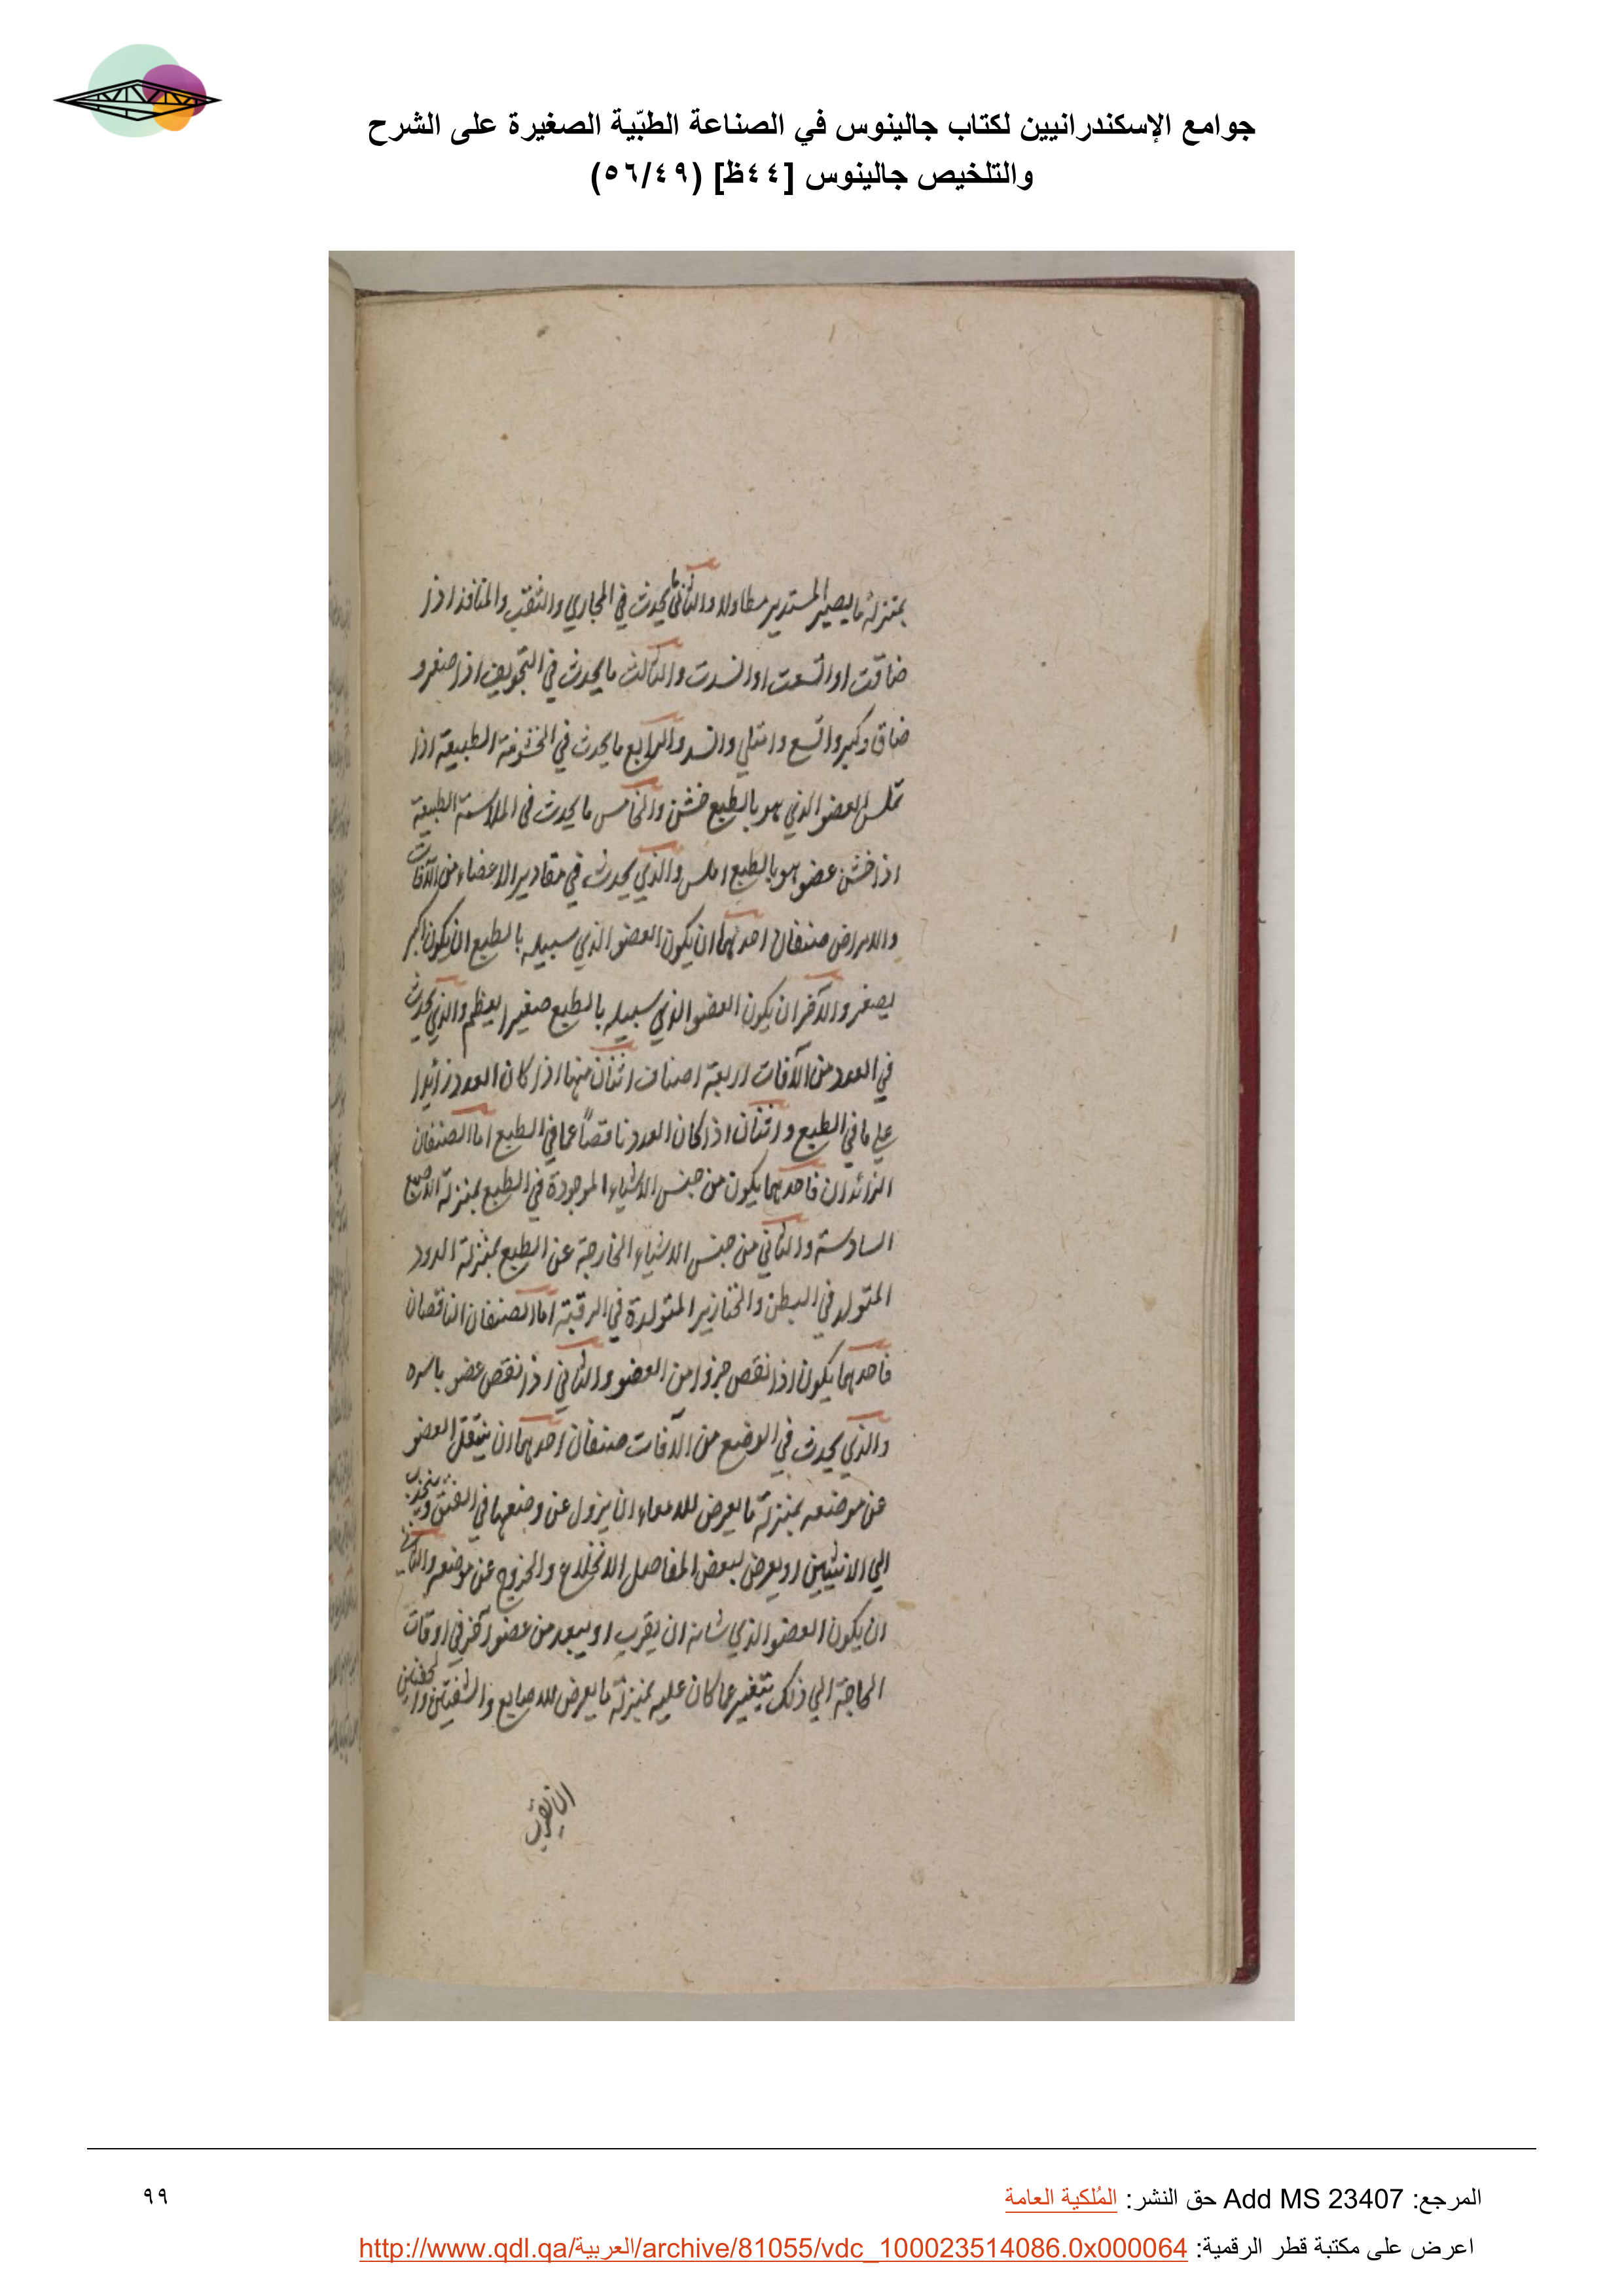 جوامع الإسكندرانيين لكتاب جالينوس في الصناعة الطبّية الصغيرة على الشرح
والتلخيص جالينوس [٤٤ظ] (٥٦/٤٩)
بمنزلة ما يصير المستدير مطاولا والثاني ما يحدث في المجاري والثقب والمنافذ اذا
ضاقت او اتسعت او انسدت والثالث ما يحدث في التجويف اذا صغر و
ضاق وكبر واتسع وامتلي وانسد والرابع ما يحدث في الخشونة الطبيعية اذا
تملس العضو الذي هو بالطبع خشن والخامس ما يحدث في الملاسة الطبيعية
اذا خشن عضو هو بالطبع املس والذي يحدث في مقادير الاعضاء من الآفات
والامراض صنفان احدهما ان يكون العضو الذي سبيله بالطبع ان يكون اكبر
يصغر والآخر ان يكون العضو الذي سبيله بالطبع صغيرا يعظم والذي يحدث
في العدد من الآفات اربعة اصناف اثنان منها اذا كان العدد زائدا
علي ما في الطبع واثنان اذا كان العدد ناقصاً عما في الطبع اما الصنفان
الزائدان فاحدهما يكون من جنس الاشياء الموجودة في الطبع بمنزلة الاصبع
السادسة والثاني من جنس الاشياء الخارجة عن الطبع بمنزلة الدود
المتولد في البطن والخنازير المتولدة في الرقبة اما الصنفان الناقصان
فاحدهما يكون اذا نقص جزوا من العضو والثاني اذا نقص عضو باسره
والذي يحدث في الوضع من الآفات صنفان احدهما ان ينتقل العضو
عن موضعه بمنزلة ما يعرض للامعاء ان يزول عن وضعها في الفتق وينجذب
الي الانثيين او يعرض لبعض المفاصل الانخلاع والخروج عن موضعه والثاني
ان يكون العضو الذي شانه ان يقرب او يبعد من عضو آخر في اوقات
الحاجة الي ذلك يتغير عما كان عليه بمنزلة ما يعرض للاصابع والشفتين والجفنين
ان تقرب
المرجع: Add MS 23407 حق النشر: المُلكية العامة
٩٩
اعرض على مكتبة قطر الرقمية: http://www.qdl.qa/العربية/archive/81055/vdc_100023514086.0x000064